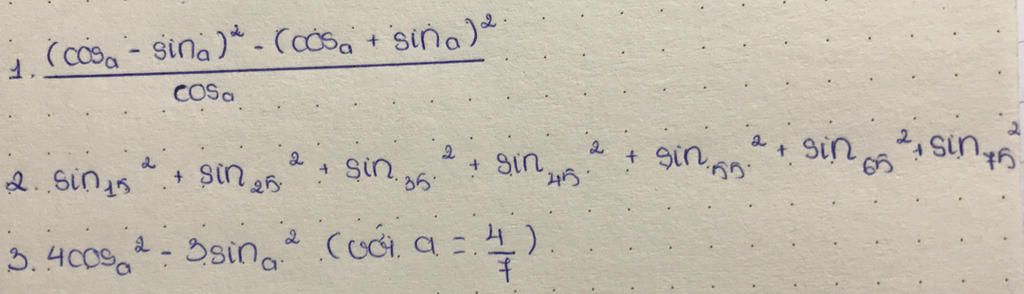 1. \frac{(cos_a - sin_a)^2 - (cos_a + sin_a)^2}{cos_a}
2. sin_{15}^2 + sin_{25}^2 + sin_{35}^2 + sin_{45}^2 + sin_{55}^2 + sin_{65}^2 + sin_{75}^2
3. 4cos_a^2 - 3sin_a^2 (với a = \frac{4}{7})